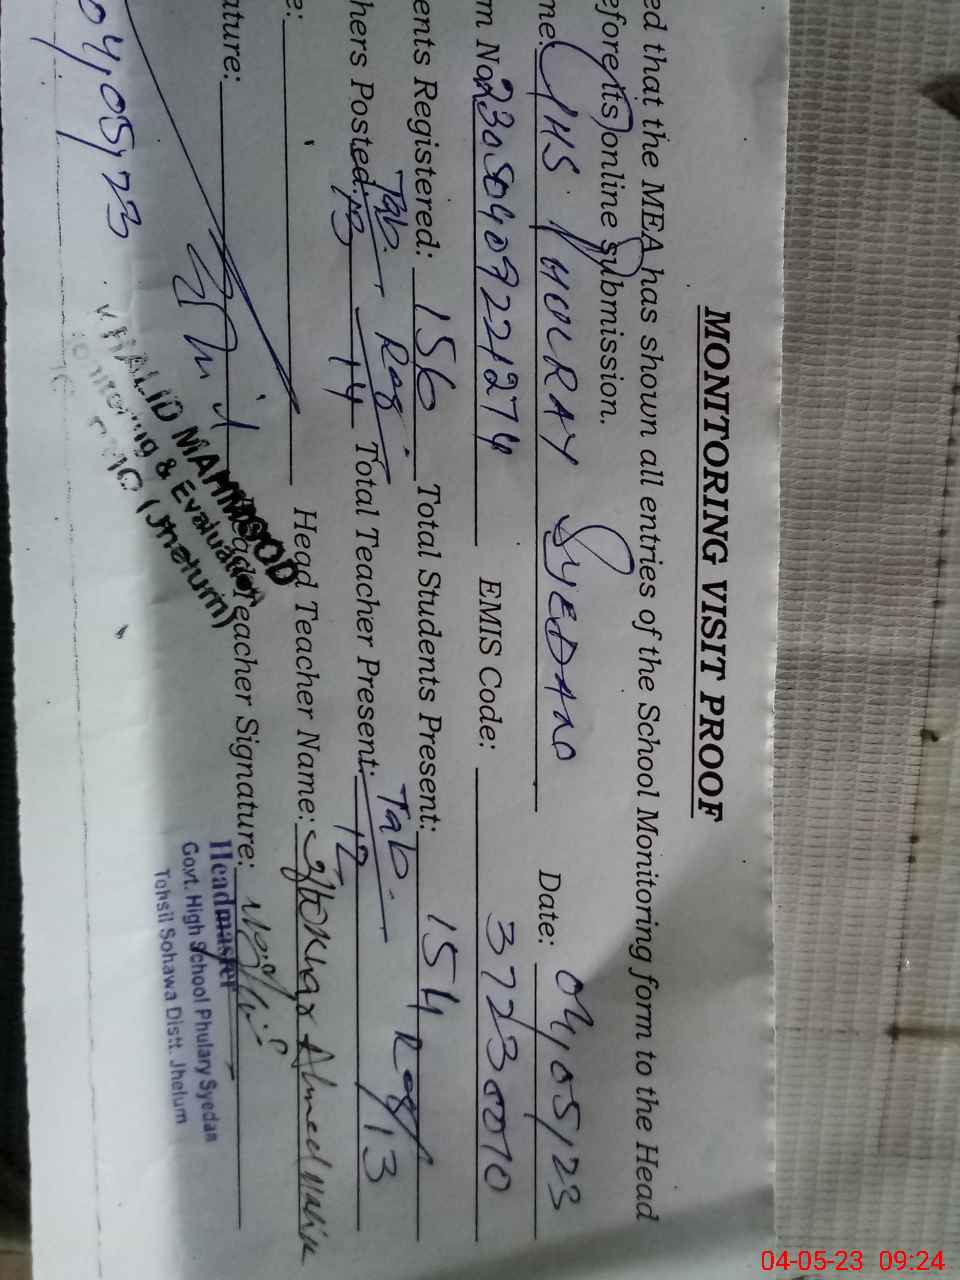 MONITORING VISIT PROOF
ed that the MEA has shown all entries of the School Monitoring form to the Head
efore its online submission.
me: GHS PHULRAY SYEDAN Date: 04,05,23
m No. EMIS Code: 37230070
ents Registered: 156 Total Students Present: 154
Tab. Reg. Tab. Reg
hers Posted: 13 14 Total Teacher Present: 12 13
e: Head Teacher Name: Iftikhar Ahmed
ature: Head Teacher Signature:
04,05,23
KHALID MAHMOOD
Monitoring & Evaluation
(Jhelum)
Headmaster
Govt. High School Phulary Syedan
Tehsil Sohawa Distt. Jhelum
04-05-23 09:24